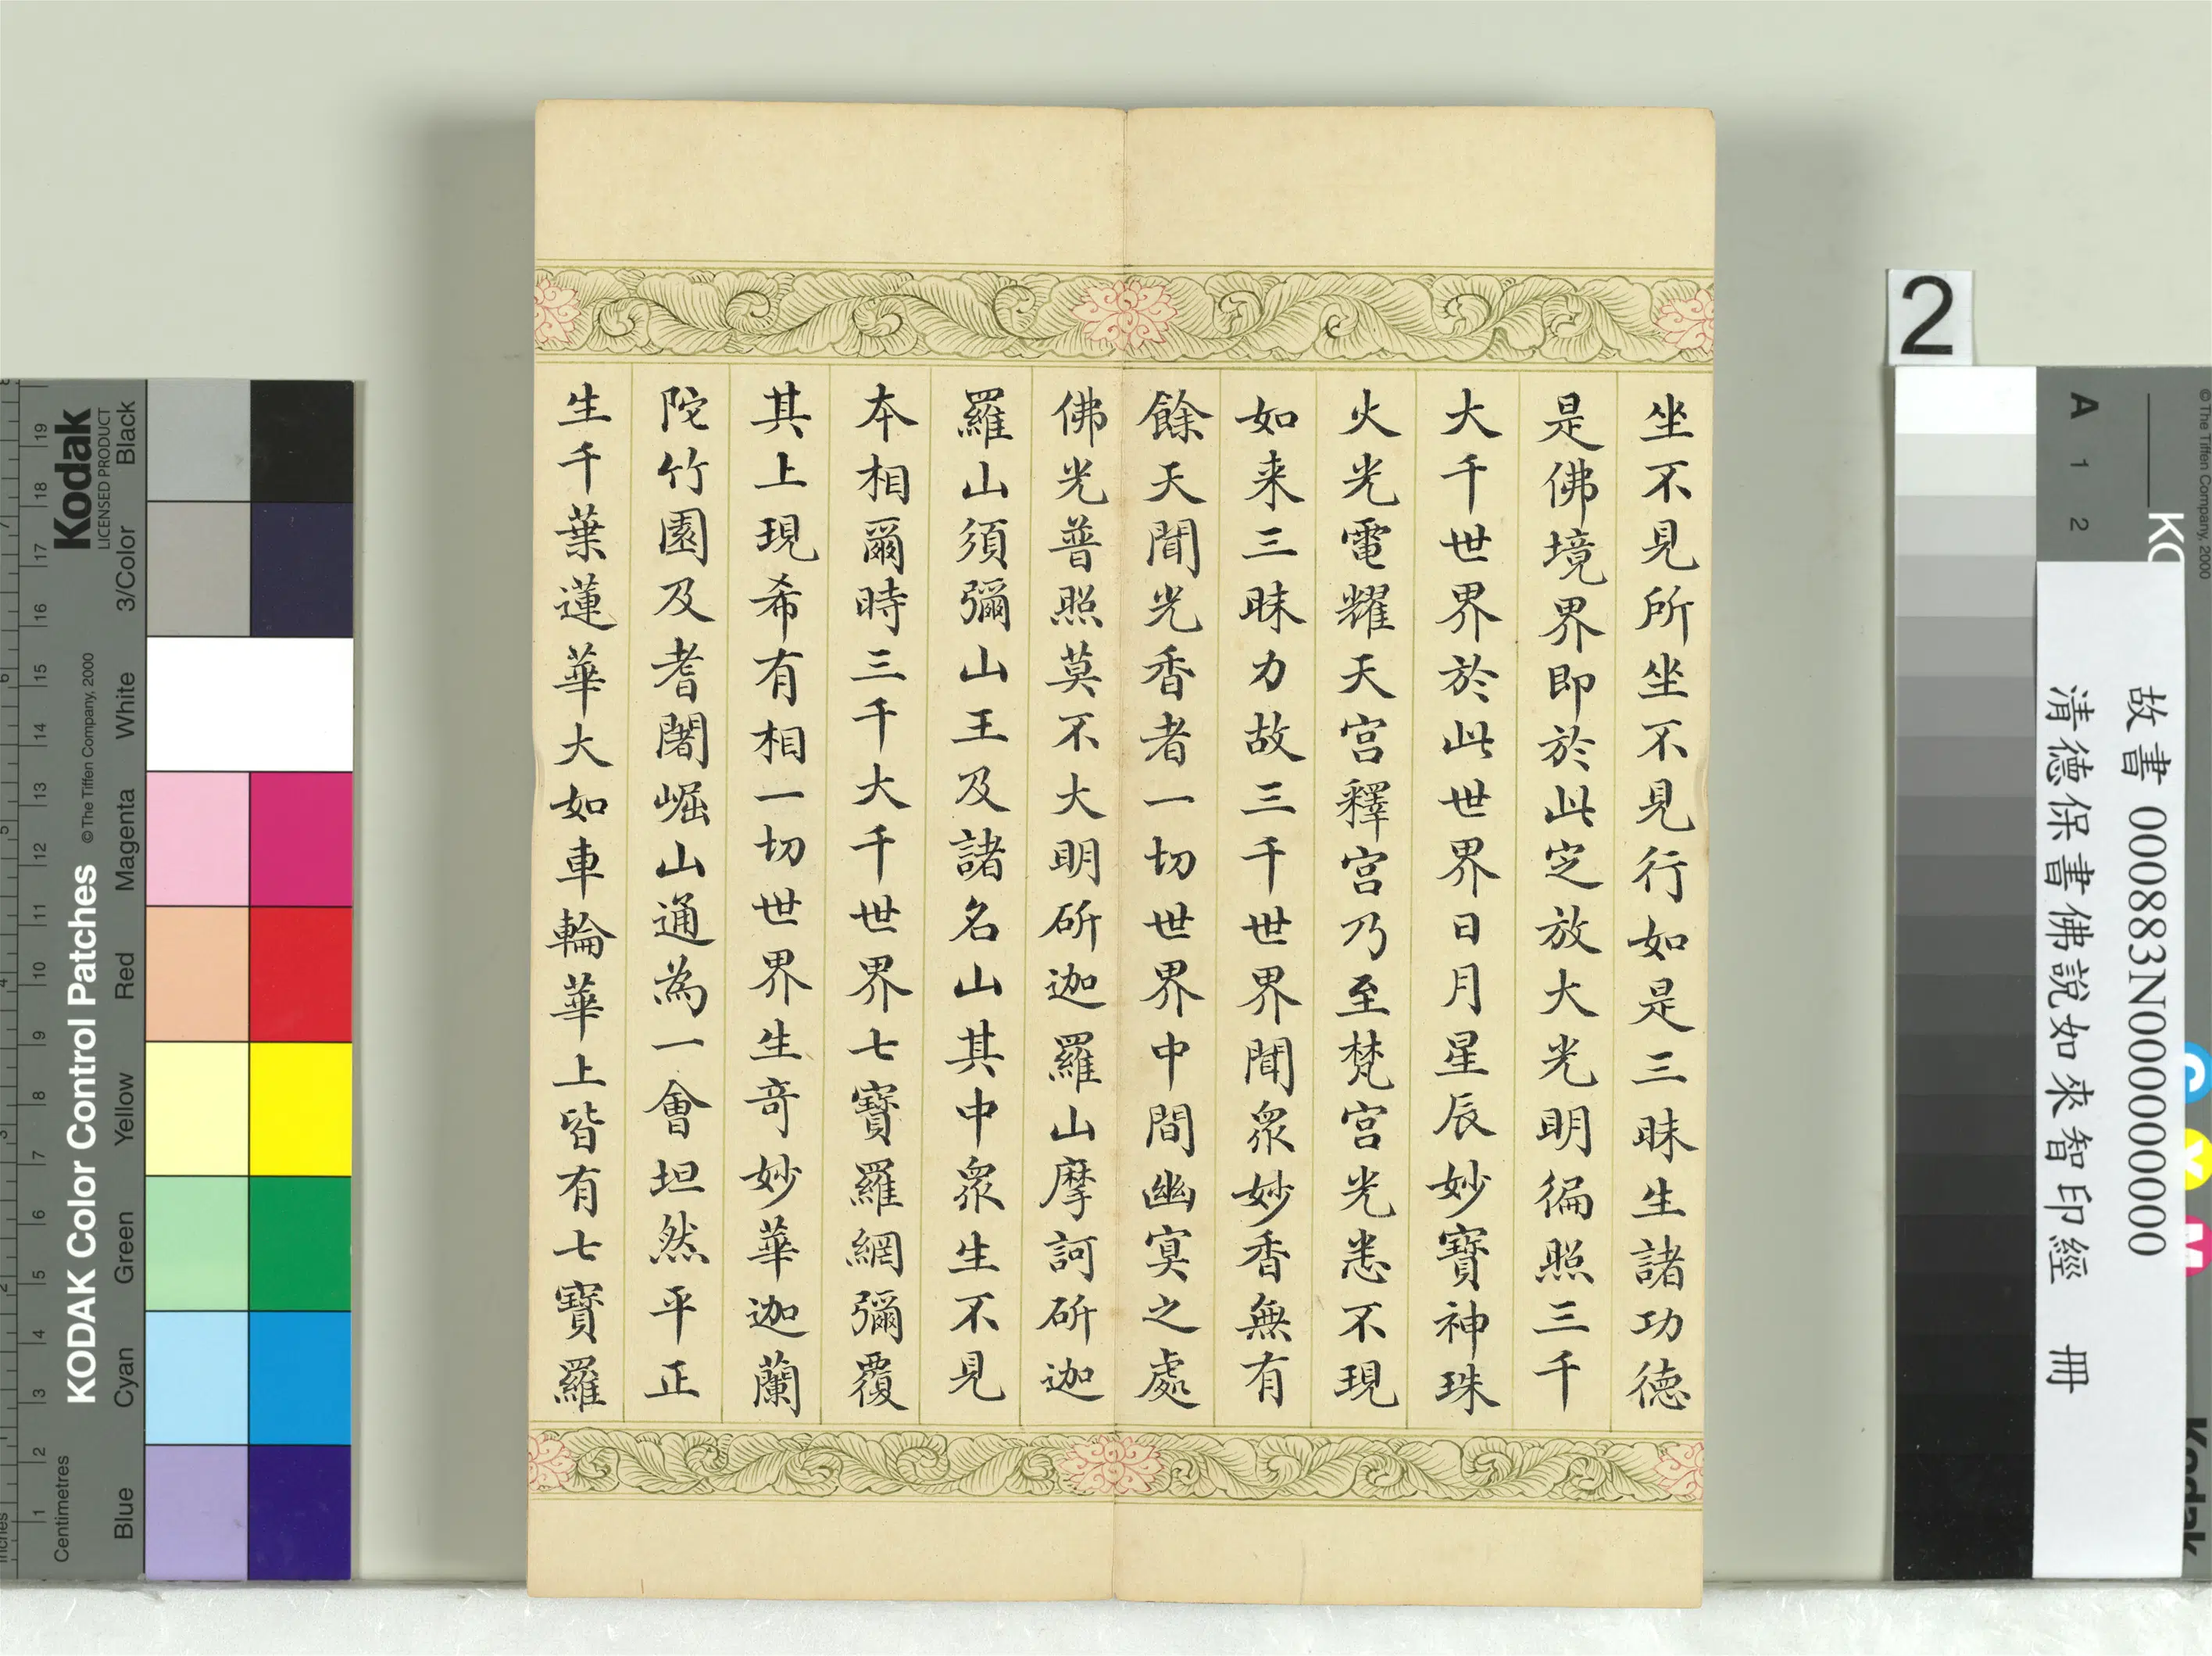 坐不見所坐不見行如是三昧生諸功德
是佛境界即於此定放大光明徧照三千
大千世界於此世界日月星辰妙寶神珠
火光電耀天宮釋宮乃至梵宮光悉不現
如来三昧力故三千世界聞眾妙香無有
餘天聞光香者一切世界中間幽冥之處
佛光普照莫不大明斫迦羅山摩訶斫迦
羅山須彌山王及諸名山其中眾生不見
本相爾時三千大千世界七寶羅網彌覆
其上現希有相一切世界生奇妙華迦蘭
陀竹園及耆闍崛山通為一會坦然平正
生千葉蓮華大如車輪華上皆有七寶羅
2
故書 000883N000000000
清德保書佛說如來智印經 冊
A 1 2
KO
© The Tiffen Company, 2000
Kodak
C Y M
Kodak
LICENSED PRODUCT
KODAK Color Control Patches
© The Tiffen Company, 2000
Blue Cyan Green Yellow Red Magenta White 3/Color Black
Inches
Centimetres
1 2 3 4 5 6 7 8 9 10 11 12 13 14 15 16 17 18 19